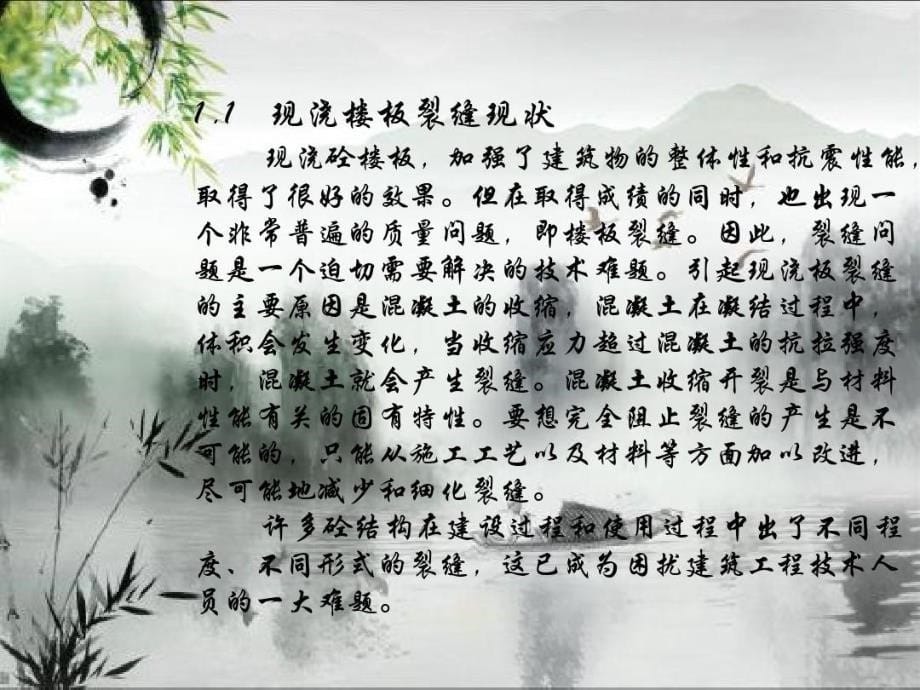 1.1 现浇楼板裂缝现状
现浇砼楼板，加强了建筑物的整体性和抗震性能，
取得了很好的效果。但在取得成绩的同时，也出现一
个非常普遍的质量问题，即楼板裂缝。因此，裂缝问
题是一个迫切需要解决的技术难题。引起现浇板裂缝
的主要原因是混凝土的收缩，混凝土在凝结过程中，
体积会发生变化，当收缩应力超过混凝土的抗拉强度
时，混凝土就会产生裂缝。混凝土收缩开裂是与材料
性能有关的固有特性。要想完全阻止裂缝的产生是不
可能的，只能从施工工艺以及材料等方面加以改进，
尽可能地减少和细化裂缝。
许多砼结构在建设过程和使用过程中出了不同程
度、不同形式的裂缝，这已成为困扰建筑工程技术人
员的一大难题。